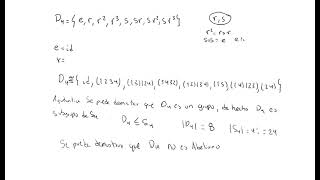 D₄ = { e, r, r², r³, s, sr, sr², sr³ }
r, s
r² = r∘r
s∘s = e
e = id
r =
D₄ ≅ { id, (1234), (13)(24), (1432), (12)(34), (13), (14)(23), (24) }
Se puede demostrar que D₄ es un grupo, de hecho D₄ es
subgrupo de S₄
D₄ ≤ S₄ |D₄| = 8 |S₄| = 4! = 24
Se puede demostrar que D₄ no es Abeliano